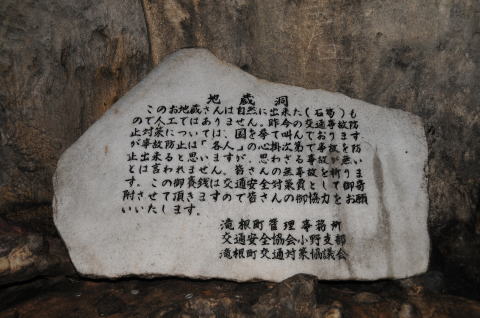 地蔵洞
このお地蔵さんは自然に出来た(石筍)も
ので人工ではありません。昨今の交通事故防
止対策については、国を挙て叫んでおります
が事故防止は「各人」の心掛次第で事故を防
止出来ると思いますが、思わざる事故が無い
とは言われません。皆さんの無事故を祈りま
す。この御賽銭は交通安全対策費として御寄
附させて頂きますので皆さんの御協力をお願
いいたします。
滝根町管理事務所
交通安全協会小野支部
滝根町交通対策協議会